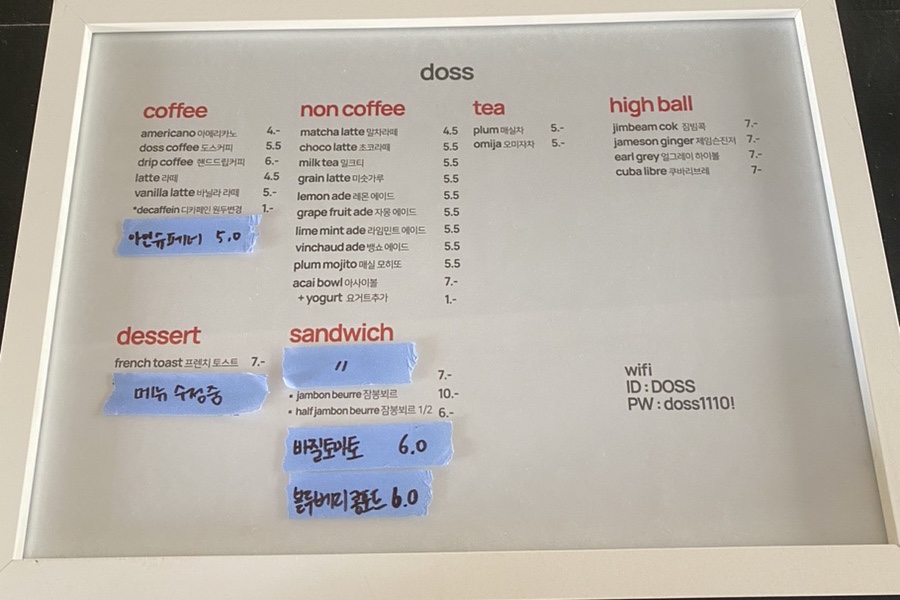 doss
coffee
americano 아메리카노 4.-
doss coffee 도스커피 5.5
drip coffee 핸드드립커피 6.-
latte 라떼 4.5
vanilla latte 바닐라 라떼 5.-
*decaffein 디카페인 원두변경 1.-
아인슈페너 5.0
non coffee
matcha latte 말차라떼 4.5
choco latte 초코라떼 5.5
milk tea 밀크티 5.5
grain latte 미숫가루 5.5
lemon ade 레몬 에이드 5.5
grape fruit ade 자몽 에이드 5.5
lime mint ade 라임민트 에이드 5.5
vinchaud ade 뱅쇼 에이드 5.5
plum mojito 매실 모히또 5.5
acai bowl 아사이볼 7.-
+ yogurt 요거트추가 1.-
tea
plum 매실차 5.-
omija 오미자차 5.-
high ball
jimbeam cok 짐빔콕 7.-
jameson ginger 제임슨진저 7.-
earl grey 얼그레이 하이볼 7.-
cuba libre 쿠바리브레 7-
dessert
french toast 프렌치 토스트 7.-
메뉴 수정중
sandwich
〃
7.-
• jambon beurre 잠봉뵈르 10.-
• half jambon beurre 잠봉뵈르 1/2 6.-
바질토마토 6.0
블루베리콤포트 6.0
wifi
ID : DOSS
PW : doss1110!